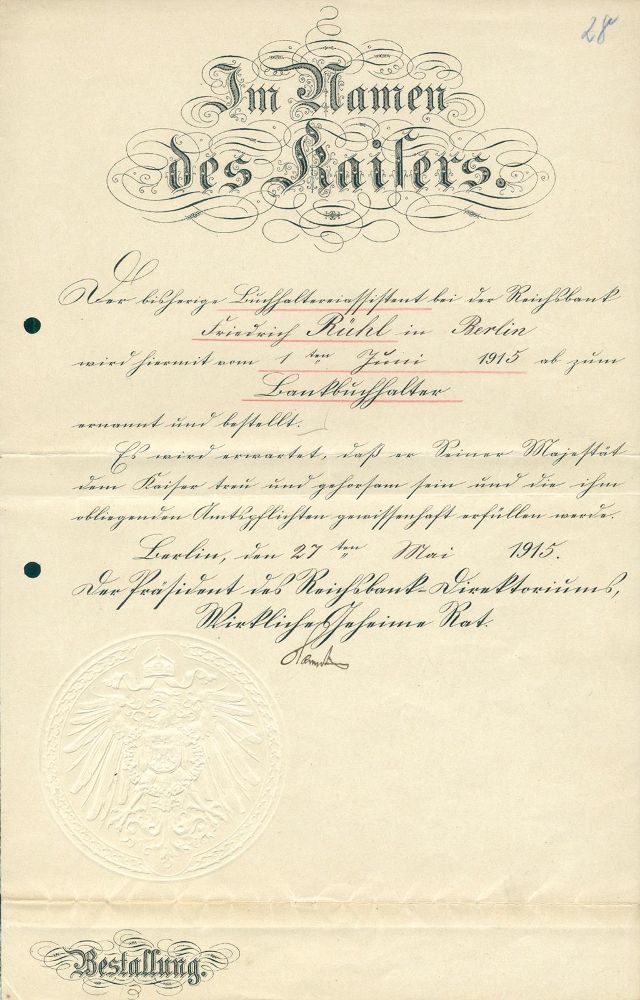 28
Im Namen
des Kaisers.
Der bisherige Buchhaltereiassistent bei der Reichsbank
Friedrich Rühl in Berlin
wird hiermit vom 1 ten Juni 1915 ab zum
Bankbuchhalter
ernannt und bestellt.
Es wird erwartet, daß er Seiner Majestät
dem Kaiser treu und gehorsam sein und die ihm
obliegenden Amtspflichten gewissenhaft erfüllen werde.
Berlin, den 27 ten Mai 1915.
Der Präsident des Reichsbank-Direktoriums,
Wirkliche Geheime Rat.
Bestallung.